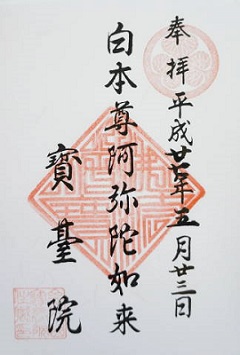 奉拝 平成廿七年五月廿三日
白本尊阿弥陀如来
寶臺院